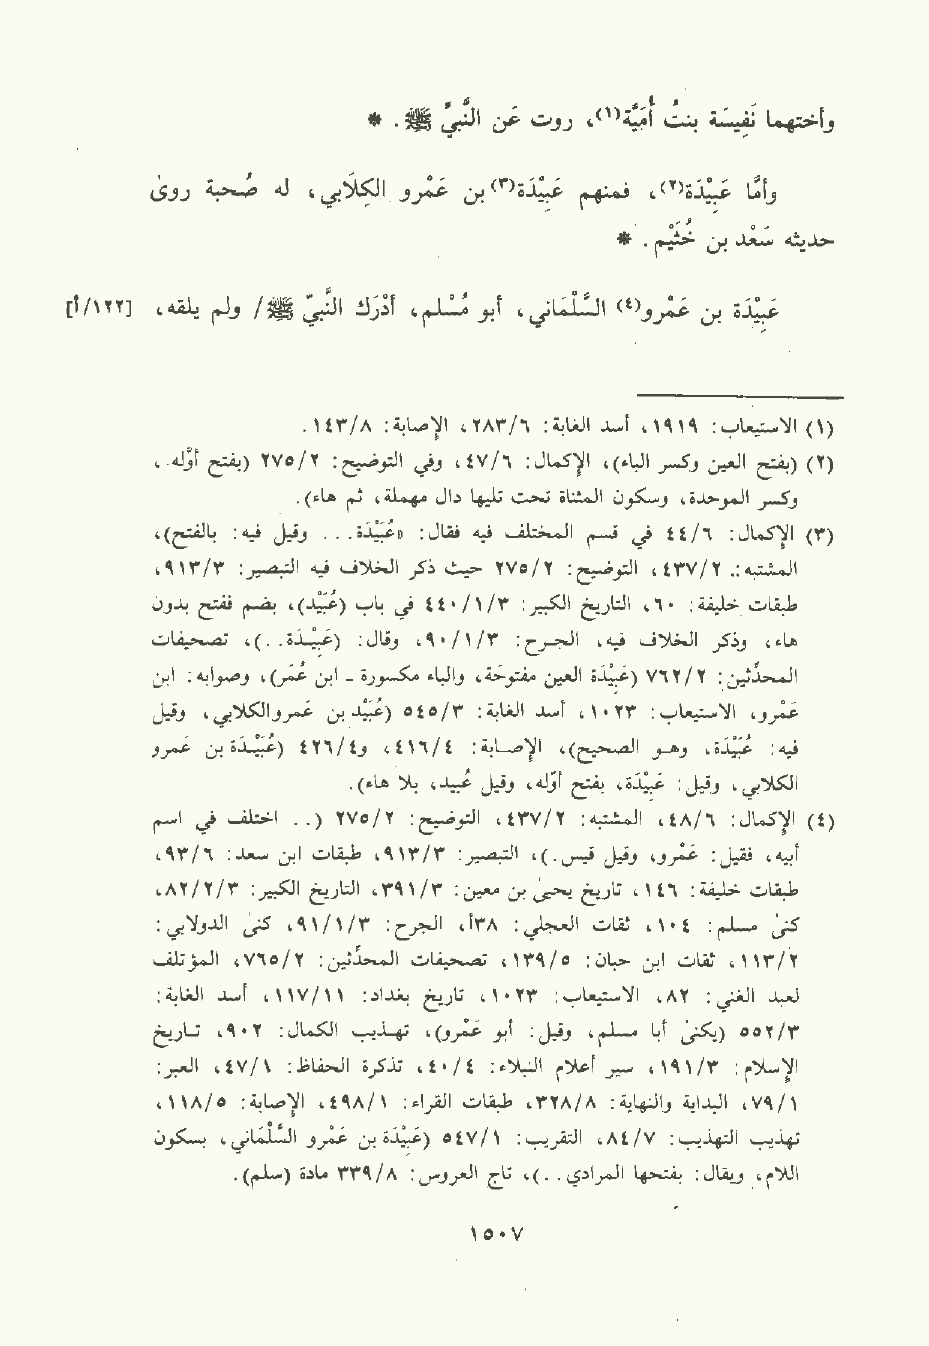 وأختهما نَفِيسَة بنتُ أُمَيَّة(١)، روت عَن النَّبيِّ ﷺ. *
وأمَّا عَبِيْدَة(٢)، فمنهم عَبِيْدَة(٣) بن عَمْرو الكِلَابي، له صُحبة روىٰ
حديثه سَعْد بن خُثَيْم. *
عَبِيْدَة بن عَمْرو(٤) السَّلْمَاني، أبو مُسْلم، أدْرَك النَّبيّ ﷺ/ ولم يلقه، [١٢٢/أ]
(١) الاستيعاب: ١٩١٩، أسد الغابة: ٢٨٣/٦، الإصابة: ١٤٣/٨.
(٢) (بفتح العين وكسر الباء)، الإكمال: ٤٧/٦، وفي التوضيح: ٢٧٥/٢ (بفتح أوّله.،
وكسر الموحدة، وسكون المثناة تحت تليها دال مهملة، ثم هاء).
(٣) الإكمال: ٤٤/٦ في قسم المختلف فيه فقال: «عُبَيْدَة... وقيل فيه: بالفتح)،
المشتبه: ٤٣٧/٢، التوضيح: ٢٧٥/٢ حيث ذكر الخلاف فيه التبصير: ٩١٣/٣،
طبقات خليفة: ٦٠، التاريخ الكبير: ٤٤٠/١/٣ في باب (عُبَيْد)، بضم ففتح بدون
هاء، وذكر الخلاف فيه، الجرح: ٩٠/١/٣، وقال: (عَبِيْدَة..)، تصحيفات
المحدّثين: ٧٦٢/٢ (عَبِيْدَة العين مفتوحة، والباء مكسورة - ابن عُمَر)، وصوابه: ابن
عَمْرو، الاستيعاب: ١٠٢٣، أسد الغابة: ٥٤٥/٣ (عُبَيْد بن عَمْروالكلابي، وقيل
فيه: عُبَيْدَة، وهو الصحيح)، الإصابة: ٤١٦/٤، و٤٢٦/٤ (عُبَيْدَة بن عَمرو
الكلابي، وقيل: عَبِيْدَة، بفتح أوّله، وقيل عُبيد، بلا هاء).
(٤) الإكمال: ٤٨/٦، المشتبه: ٤٣٧/٢، التوضيح: ٢٧٥/٢ (.. اختلف في اسم
أبيه، فقيل: عَمْرو، وقيل قيس.)، التبصير: ٩١٣/٣، طبقات ابن سعد: ٩٣/٦،
طبقات خليفة: ١٤٦، تاريخ يحيىٰ بن معين: ٣٩١/٣، التاريخ الكبير: ٨٢/٢/٣،
كنىٰ مسلم: ١٠٤، ثقات العجلي: ٣٨أ، الجرح: ٩١/١/٣، كنىٰ الدولابي:
١١٣/٢، ثقات ابن حبان: ١٣٩/٥، تصحيفات المحدّثين: ٧٦٥/٢، المؤتلف
لعبد الغني: ٨٢، الاستيعاب: ١٠٢٣، تاريخ بغداد: ١١٧/١١، أسد الغابة:
٥٥٢/٣ (يكنىٰ أبا مسلم، وقيل: أبو عَمْرو)، تهذيب الكمال: ٩٠٢، تاريخ
الإسلام: ١٩١/٣، سير أعلام النبلاء: ٤٠/٤، تذكرة الحفاظ: ٤٧/١، العبر:
٧٩/١، البداية والنهاية: ٣٢٨/٨، طبقات القراء: ٤٩٨/١، الإصابة: ١١٨/٥،
تهذيب التهذيب: ٨٤/٧، التقريب: ٥٤٧/١ (عَبِيْدَة بن عَمْرو السَّلْمَاني، بسكون
اللام، ويقال: بفتحها المرادي..)، تاج العروس: ٣٣٩/٨ مادة (سلم).
١٥٠٧